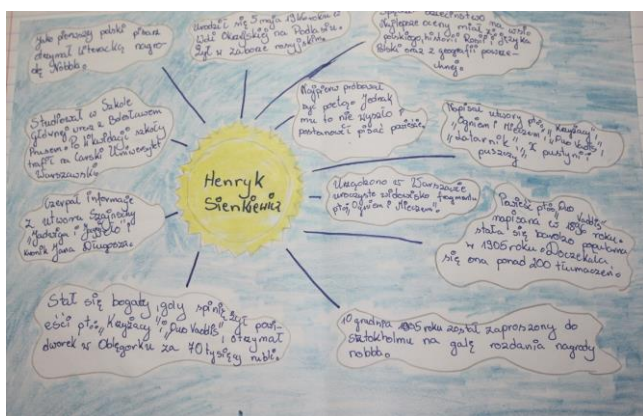 Jako pierwszy polski pisarz
otrzymał literacką nagro-
dę Nobba.
Urodził się 5 maja 1846 roku w
Woli Okrzejskiej na Podlasiu.
Żył w zaborze rosyjskim.
Spędził dzieciństwo na wsi.
Najlepsze oceny miał z języka
polskiego, historii Rosji i
Polski oraz z geografii powsze-
chnej.
Studiował w Szkole
głównej wraz z Bolesławem
Prusem. Po likwidacji szkoły
trafił na Carski Uniwersytet
Warszawski.
Najpierw próbował
być poetą. Jednak
mu to nie wyszło i
postanowił pisać powieści.
Napisał utwory ptj. „Krzyżacy",
„Ogniem i Mieczem", „Quo Vadis",
„Latarnik", „W pustyni i
puszczy".
Henryk
Sienkiewicz
Czerpał informacje
z utworu Szajnochy
„Jadwiga i Jagiełło" i
kronik Jana Długosza.
Urządzono w Warszawie
uroczyste widowisko fragmentu
ptj. Ogniem i Mieczem.
Powieść ptj. „Quo Vadis"
napisana w 1896 roku.
stała się bardzo popularna
w 1905 roku. Doczekała
się ona ponad 200 tłumaczeń.
Stał się bogaty, gdy
eści ptj. „Krzyżacy" i „Quo Vadis", i otrzymał
dworek w Oblęgorku za 70 tysięcy rubli.
10 grudnia 1905 roku został zaproszony do
sztokholmu na galę rozdania nagrody
nobba.